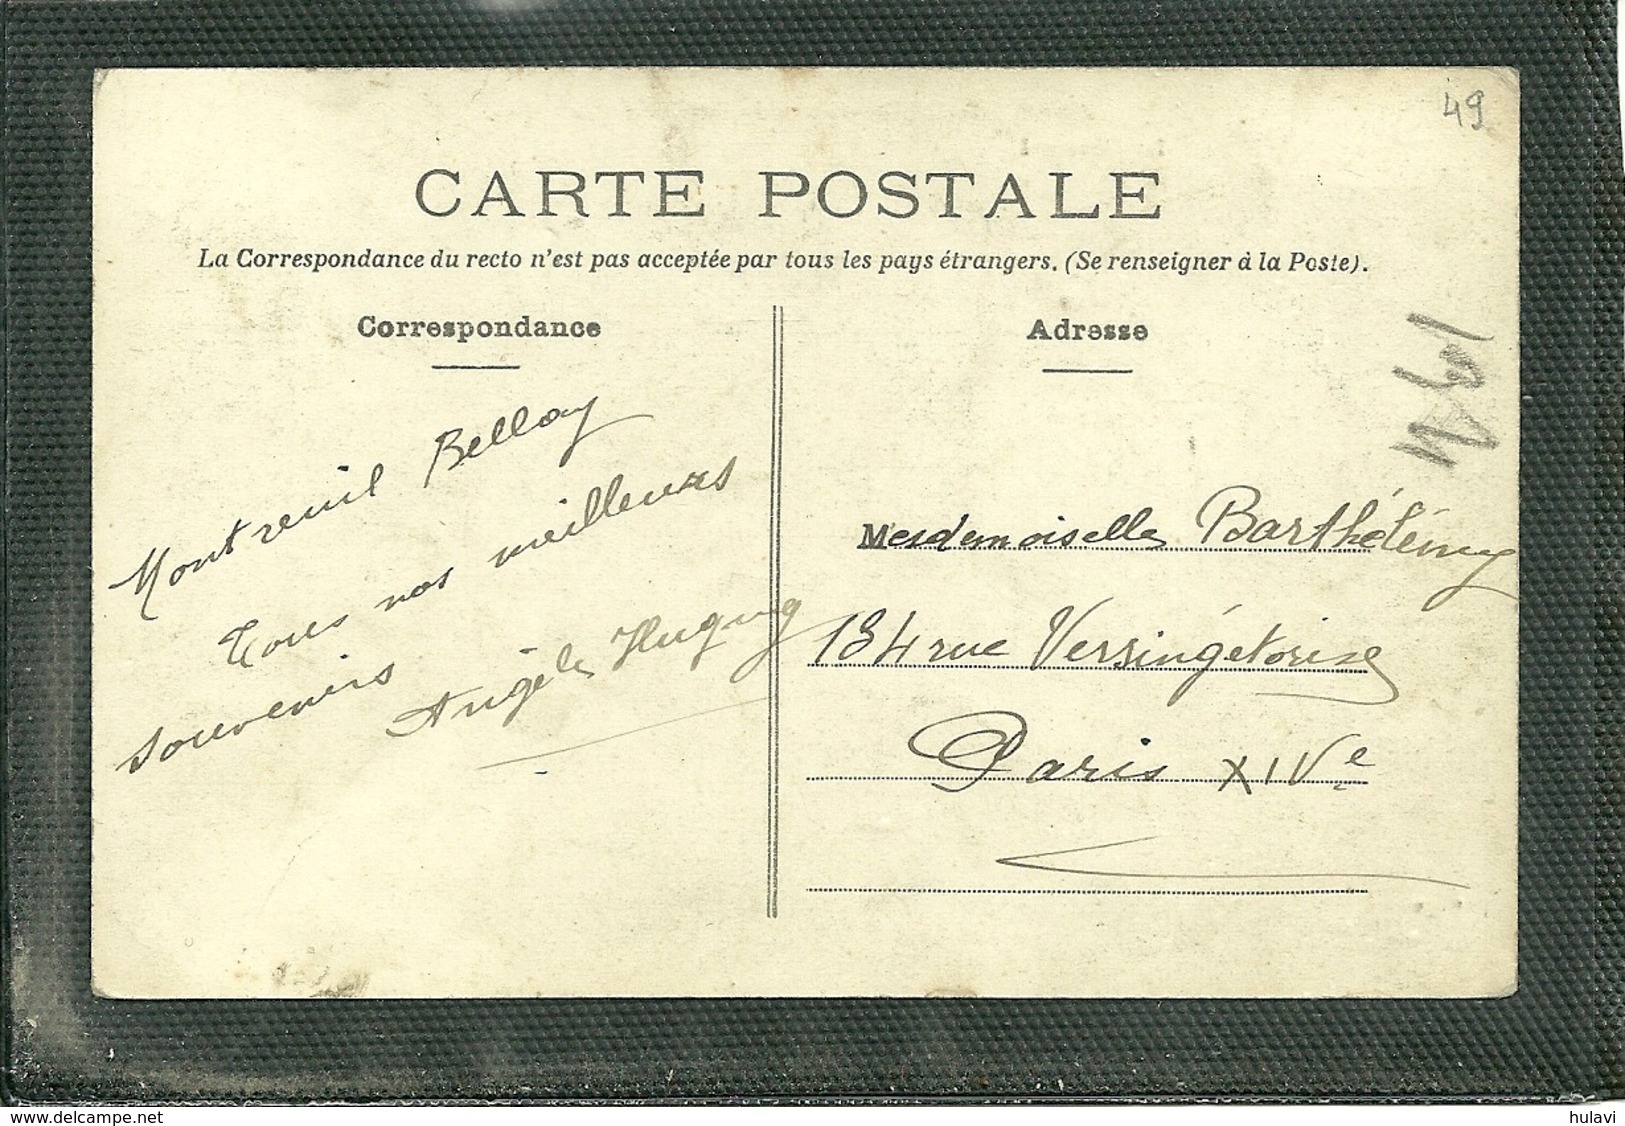 49
CARTE POSTALE
La Correspondance du recto n'est pas acceptée par tous les pays étrangers. (Se renseigner à la Poste).
Correspondance
Montreuil Bellay
Tous nos meilleurs
souvenirs
Angèle
Adresse
Mesdemoiselles Barthélémy
134 rue Versingétorixe
Paris XIVe
www.delcampe.net
hulavi